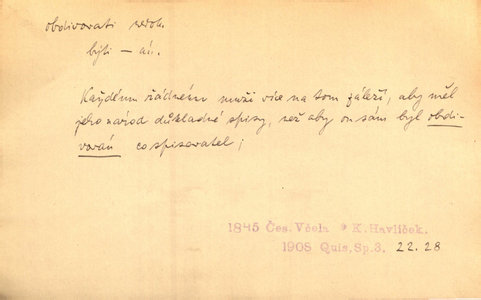 obdivovati nedok.
býti — án.
Každému řádnému muži více na tom záleží, aby měl
jeho národ důkladné spisy, než aby on sám byl obdi-
vován co spisovatel;
1845 Čes. Včela * K. Havlíček.
1908 Quis, Sp. 3. 22.28